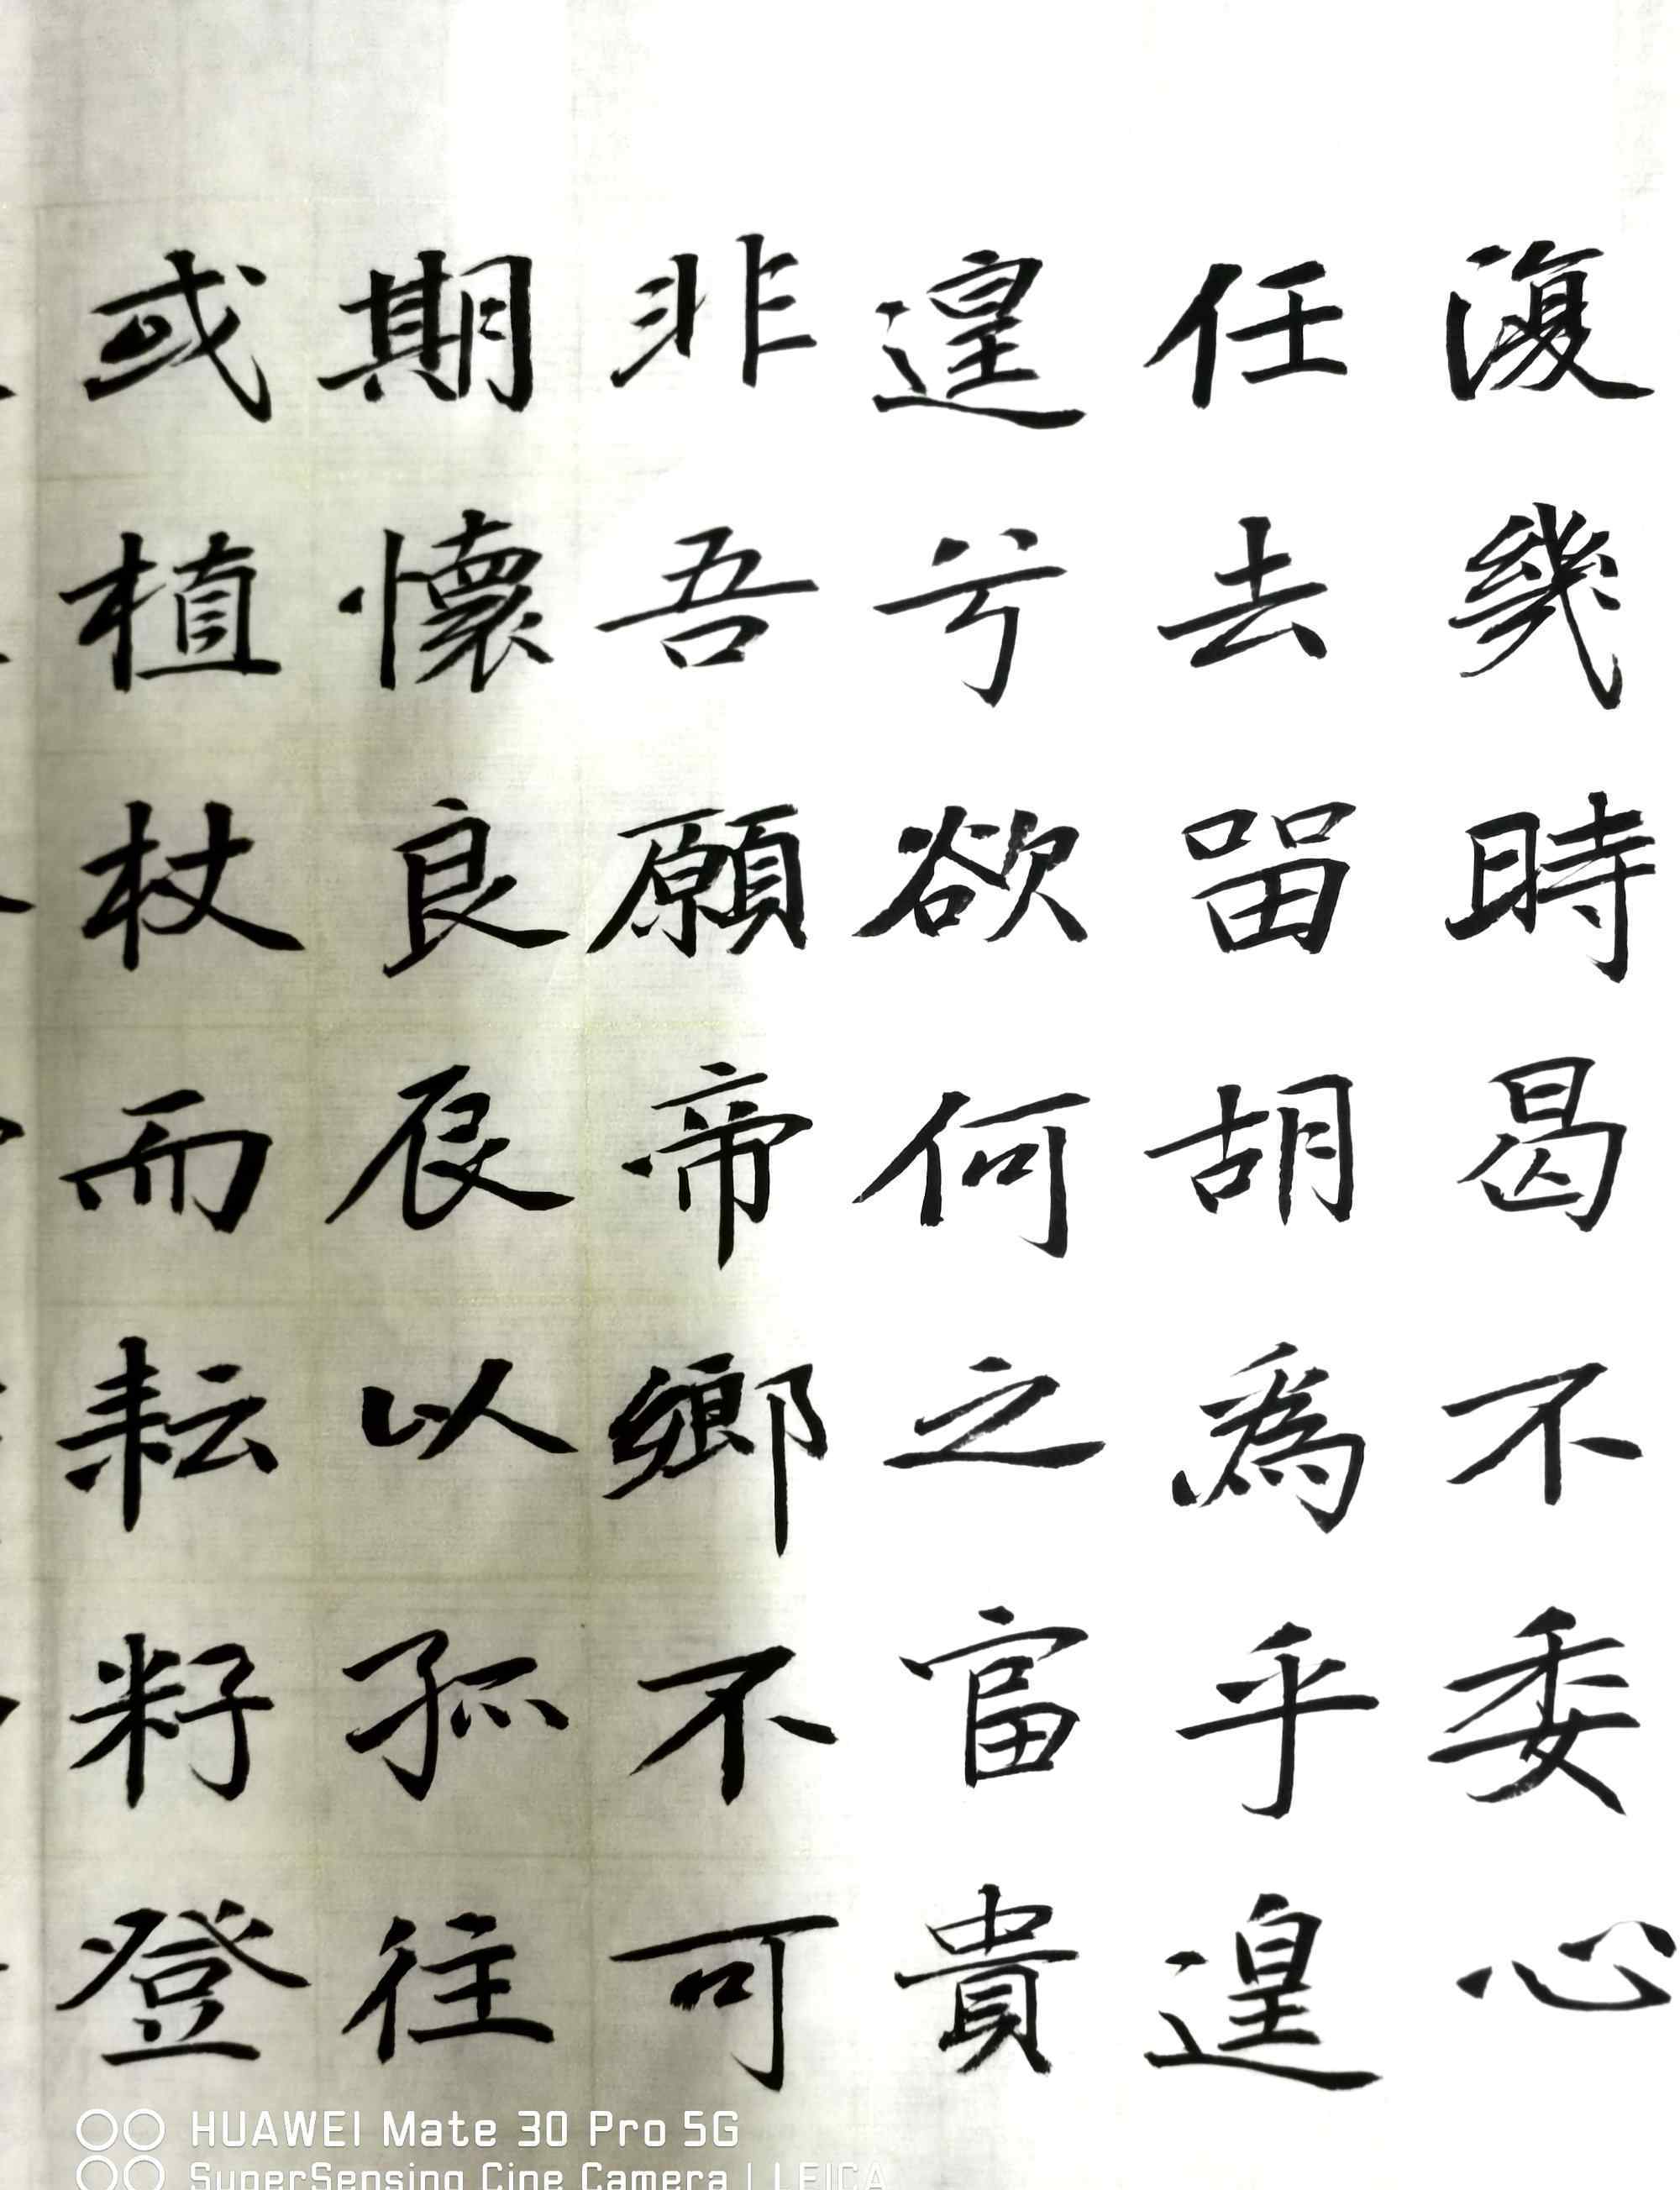 復幾時曷不委心
任去留胡為乎遑
遑兮欲何之富貴
非吾願帝鄉不可
期懷良辰以孤往
或植杖而耘耔登
HUAWEI Mate 30 Pro 5G
SuperSensing Cine Camera | LEICA